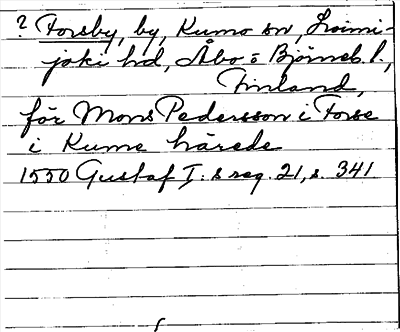 ? Forsby, by, Kumo sn, Loimi-
joki hd, Åbo o Björneb. l.,
Finland,
för Mons Pedersson i Forse
i Kume härede
1550 Gustaf I:s reg. 21, s. 341